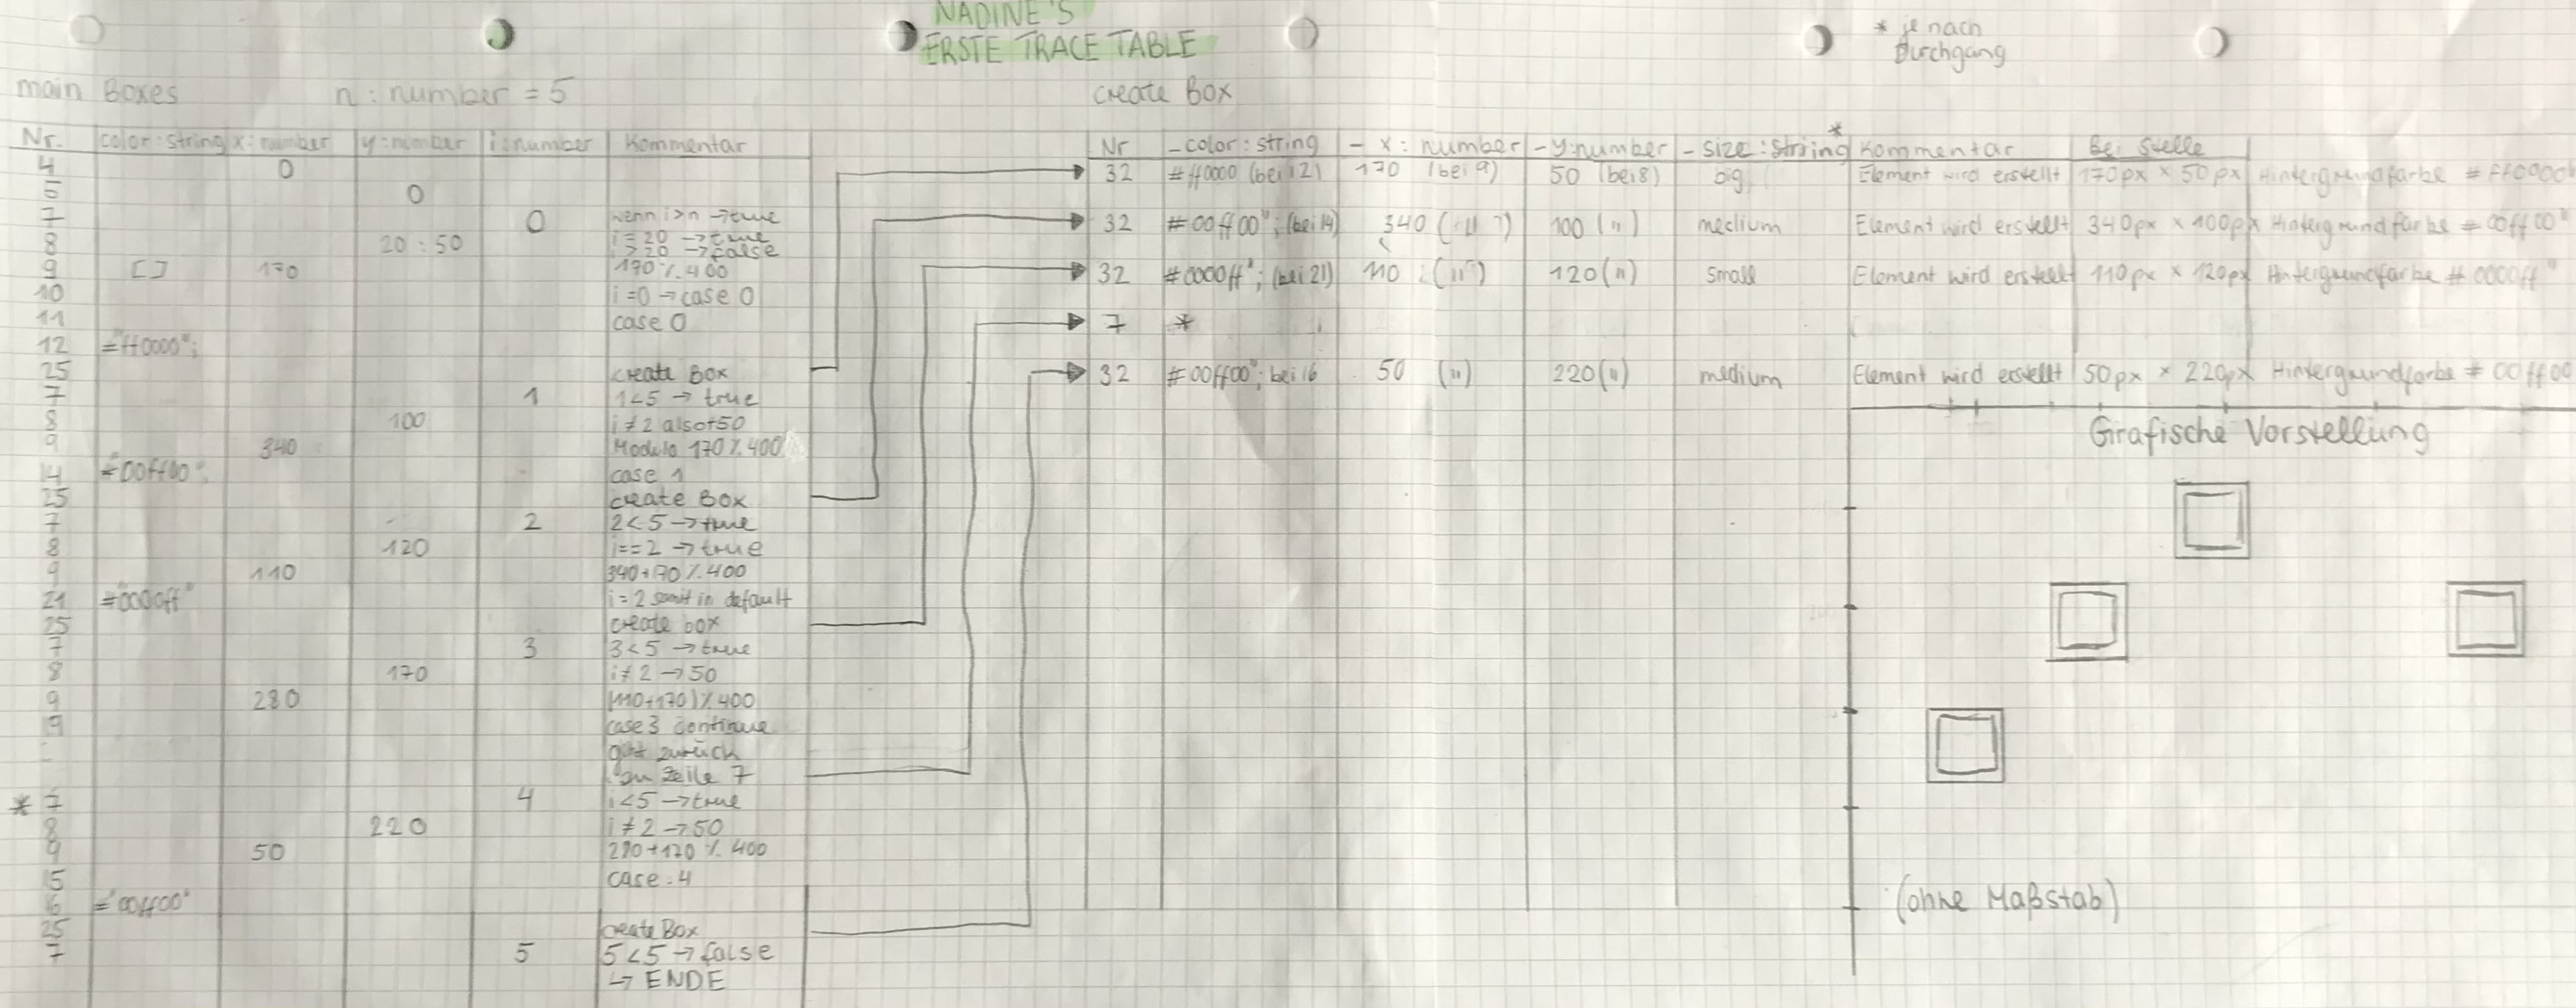 NADINE'S
ERSTE TRACE TABLE
* je nach
Durchgang
main Boxes n : number = 5
create Box
Nr. color:string x:number y:number i:number Kommentar
4 0
5 0
7 0 wenn i>n →true
i = 20 →true
8 20 : 50 i > 20 →false
9 [ ] 170 170 % 400
10 i = 0 → case 0
11 case 0
12 ="ff0000";
25 create Box
7 1 1<5 → true
8 100 i ≠ 2 also+50
9 340 Modulo 170 % 400
14 =#00ff00";
case 1
25 create Box
7 2 2<5 →true
8 120 i==2 →true
9 110 340+170 % 400
21 =#0000ff" i = 2 somit in default
25 create box
7 3 3<5 →true
8 170 i≠2 →50
9 280 (110+170) % 400
19 case 3 continue
geht zurück
zu Zeile 7
* 7 4 i<5 →true
8 220 i ≠ 2 →50
9 50 280+170 % 400
15 case : 4
16 ="00ff00"
25 create Box
7 5 5<5 → false
↳ ENDE
Nr -color:string - x : number -y:number - size : string* Kommentar Bei Stelle
32 #ff0000 (bei 12) 170 (bei 9) 50 (bei 8) big Element wird erstellt 170px × 50px Hintergrundfarbe #FF0000"
32 #00ff00"; (bei 14) 340 (") 100 (") medium Element wird erstellt 340px × 100px Hintergrundfarbe #00ff00"
32 #0000ff"; (bei 21) 110 (") 120 (") small Element wird erstellt 110px × 120px Hintergrundfarbe #0000ff"
7 *
32 #00ff00"; bei 16 50 (") 220 (") medium Element wird erstellt 50px × 220px Hintergrundfarbe #00ff00
Grafische Vorstellung
(ohne Maßstab)